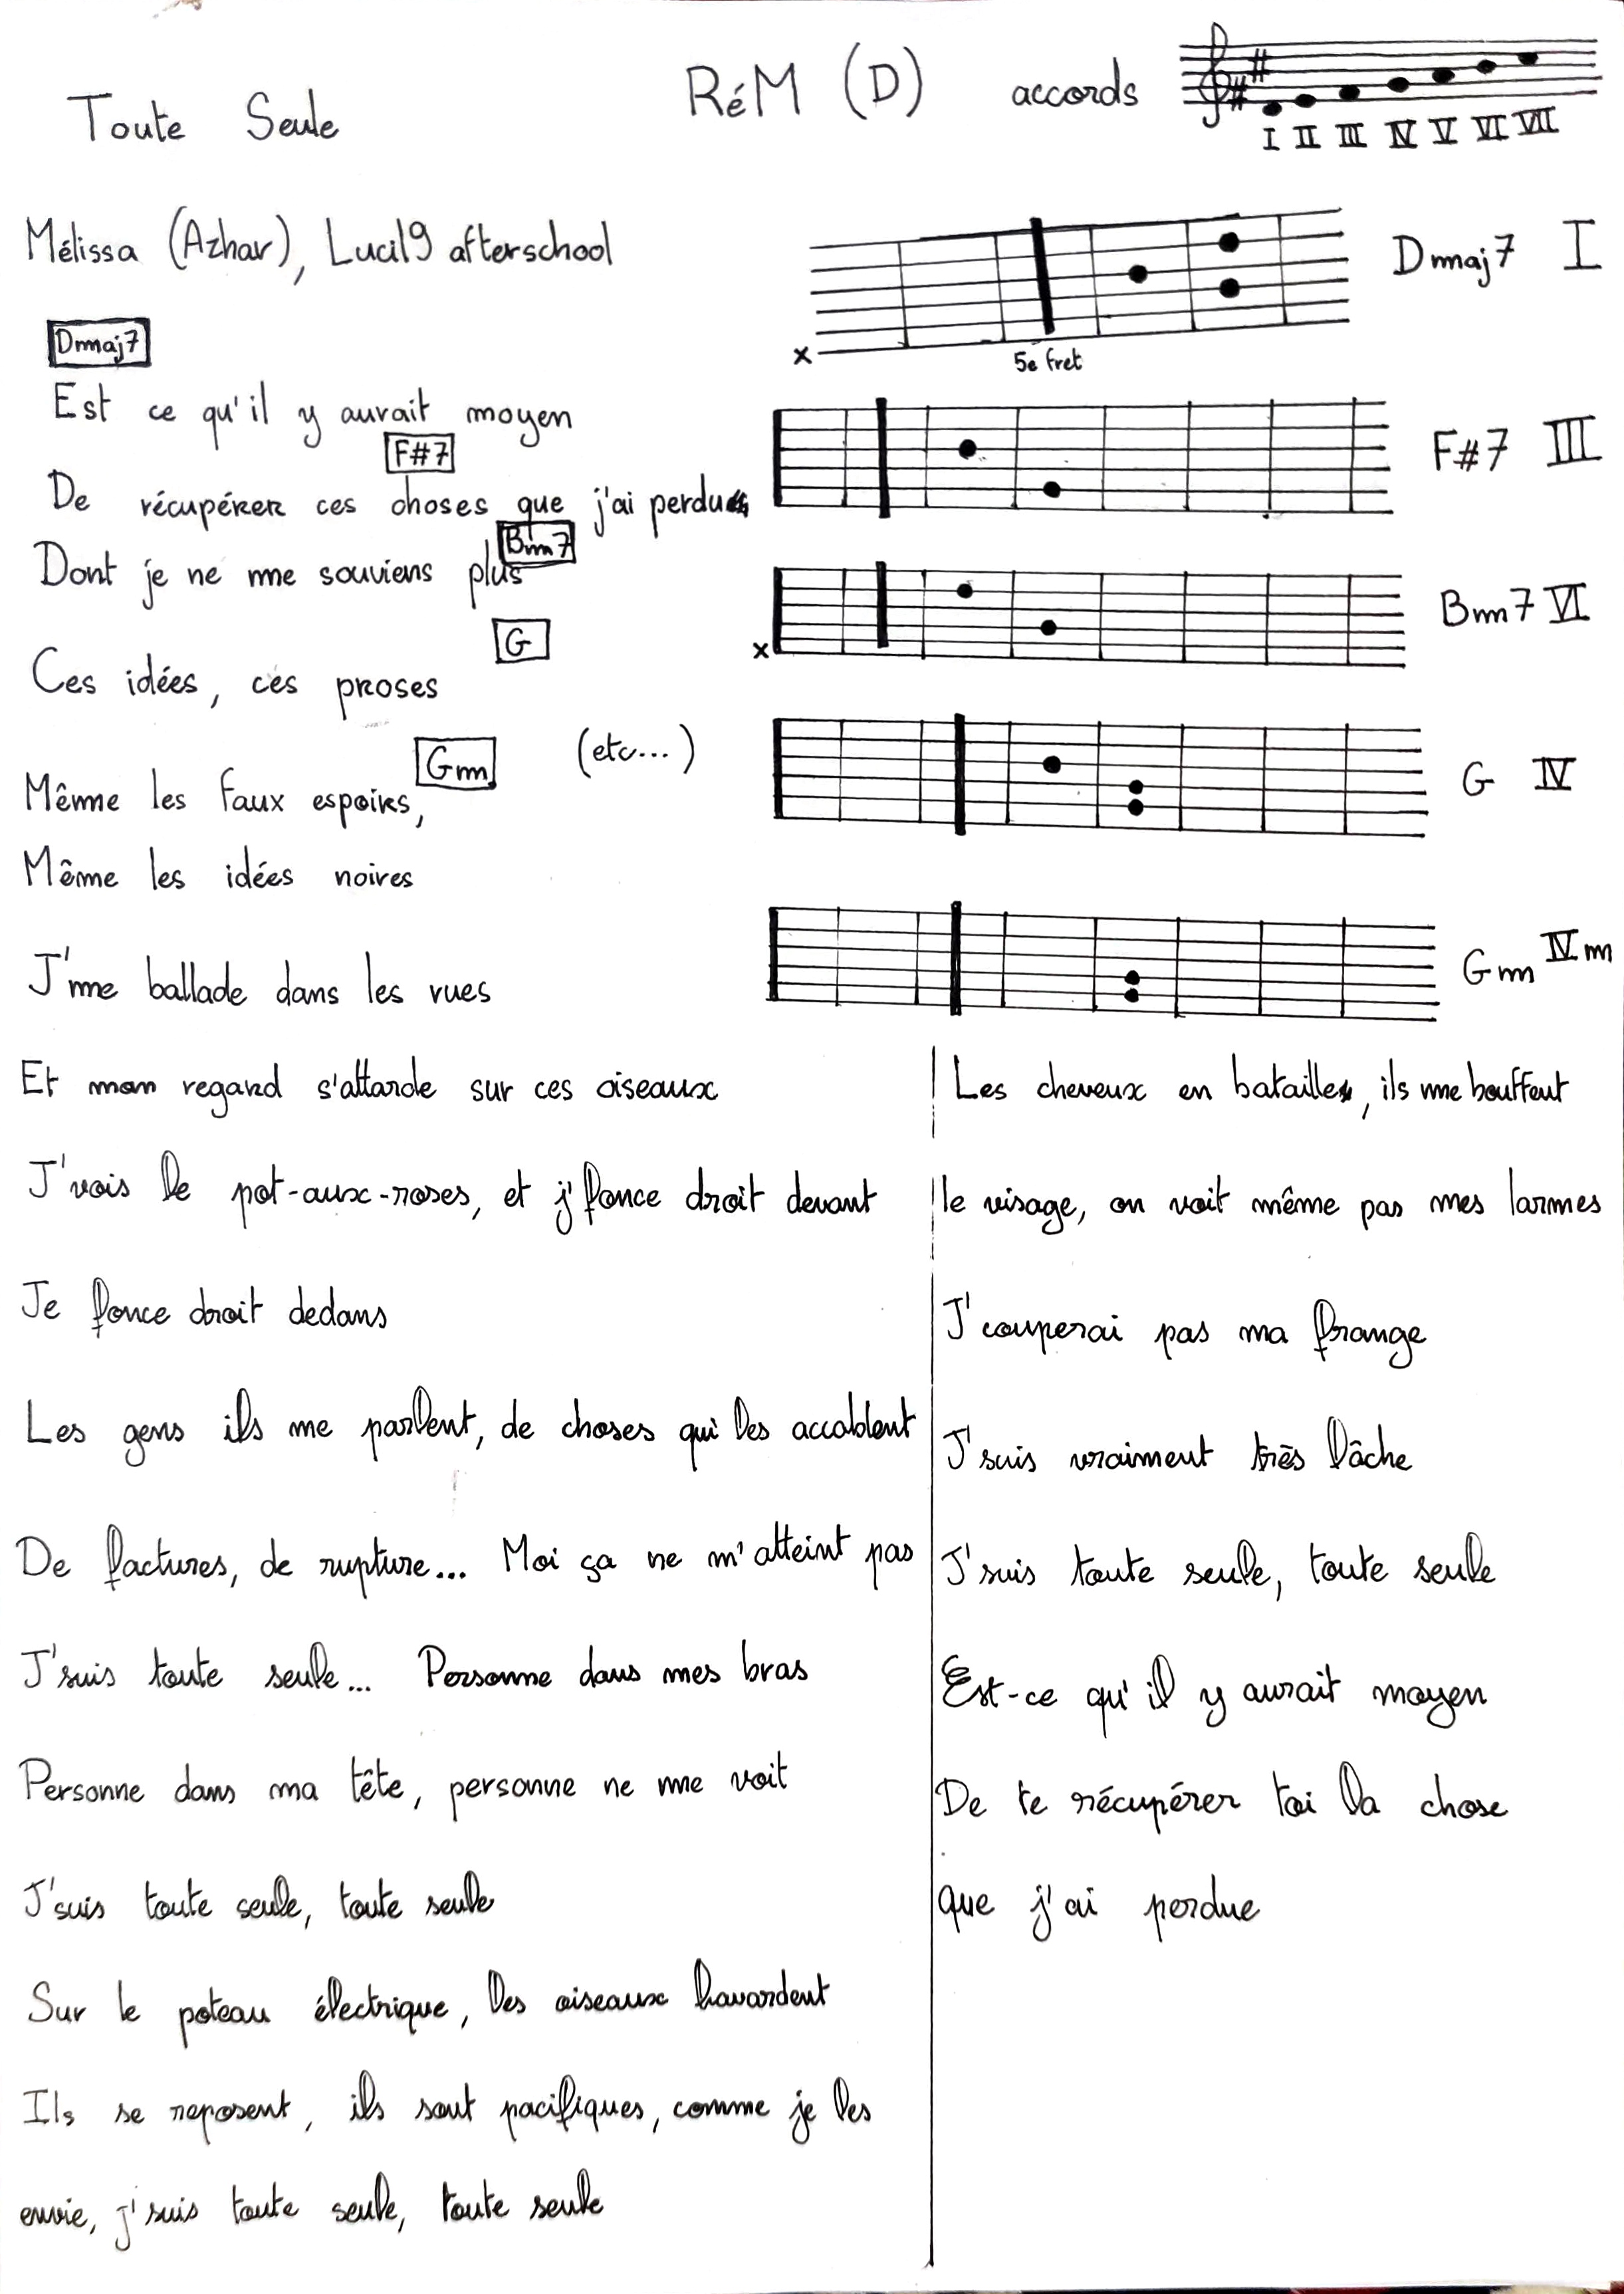 Toute Seule
RéM (D) accords
I II III IV V VI VII
Mélissa (Azhar), Lucil9 afterschool
Dmaj7 I
x
5e fret
Dmaj7
Est ce qu'il y aurait moyen
F#7
F#7 III
De récupérer ces choses que j'ai perdues
Bm7
Dont je ne me souviens plus
x
Bm7 VI
G
Ces idées, ces proses
Gm
(etc...)
G IV
Même les faux espoirs,
Même les idées noires
Gm IVm
J'me ballade dans les rues
Et mon regard s'attarde sur ces oiseaux
J'vois le pot-aux-roses, et j'fonce droit devant
Je fonce droit dedans
Les gens ils me parlent, de choses qui les accablent
De factures, de rupture... Moi ça ne m'atteint pas
J'suis toute seule... Personne dans mes bras
Personne dans ma tête, personne ne me voit
J'suis toute seule, toute seule
Sur le poteau électrique, les oiseaux bavardent
Ils se reposent, ils sont pacifiques, comme je les
envie, j'suis toute seule, toute seule
Les cheveux en bataille, ils me bouffent
le visage, on voit même pas mes larmes
J'couperai pas ma frange
J'suis vraiment très lâche
J'suis toute seule, toute seule
Est-ce qu'il y aurait moyen
De te récupérer toi la chose
que j'ai perdue